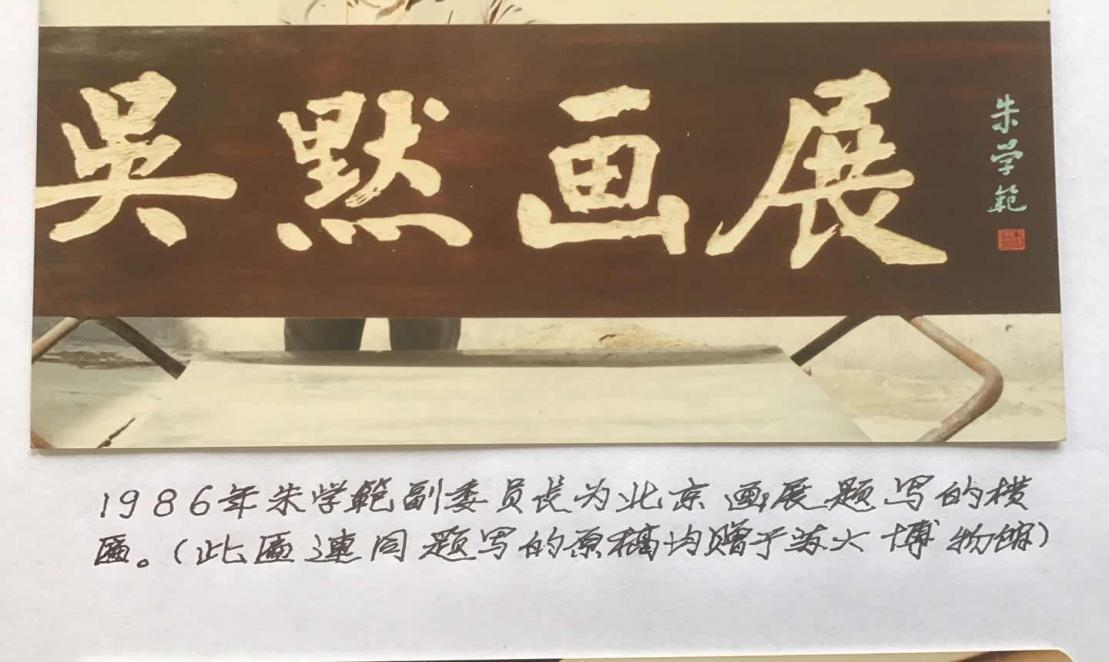 吳默画展
朱学範
1986年朱学範副委员长为北京画展题写的横
匾。(此匾連同题写的原稿均赠于苏大博物馆)